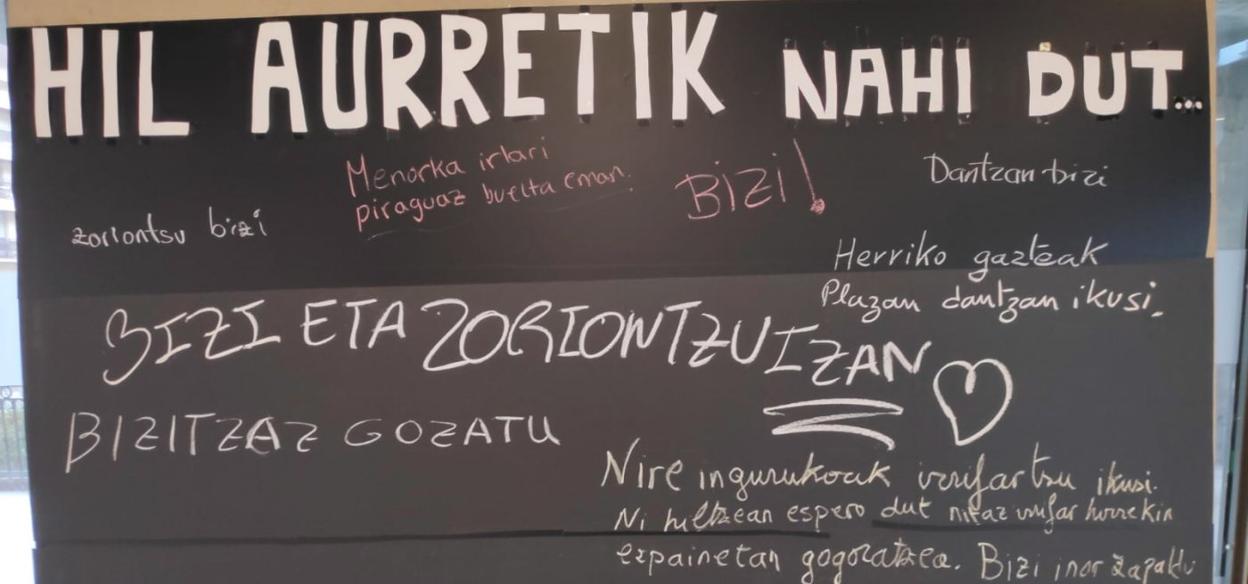 HIL AURRETIK NAHI DUT...
Menorka irlari
piraguaz buelta eman.
BIZI!
Dantzan bizi
zoriontsu bizi
Herriko gazteak
Plazan dantzan ikusi.
BIZI ETA ZORIONTZU IZAN
BIZITZAZ GOZATU
Nire ingurukoak irrifartsu ikusi.
Ni hiltzean espero dut nitaz irrifar horrekin
ezpainetan gogoratzea. Bizi inor zapaldu